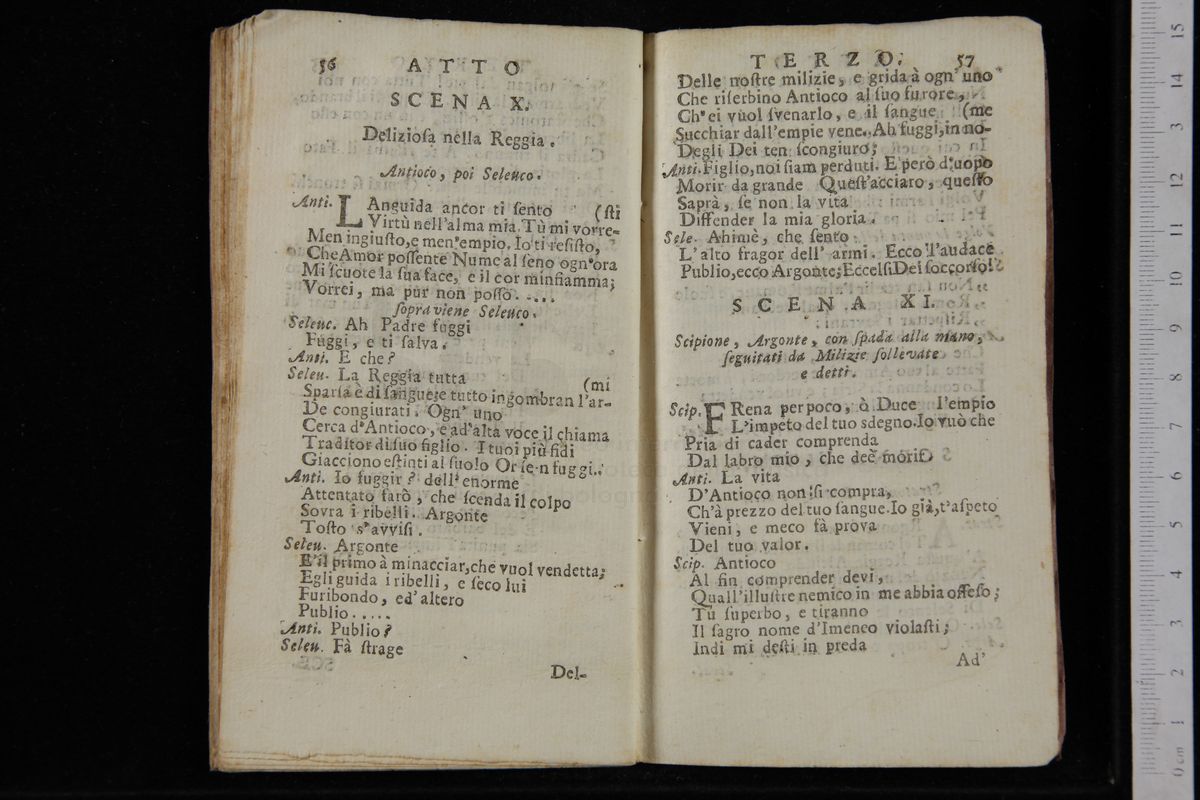 56 ATTO
SCENA X.
Delizioſa nella Reggia.
Antioco, poi Seleuco.
Anti. LAnguida ancor ti ſento (ſti
Virtù nell'alma mia. Tù mi vorre-
Men ingiuſto, e men'empio. Io ti reſiſto,
Che Amor poſſente Nume al ſeno ogn'ora
Mi ſcuote la ſua face, e il cor minfiamma;
Vorrei, ma pur non poſſo. ....
ſopraviene Seleuco.
Seleuc. Ah Padre fuggi
Fuggi, e ti ſalva.
Anti. E che?
Seleu. La Reggia tutta (mi
Sparſa è di ſangue; e tutto ingombran l'ar-
De congiurati. Ogn' uno
Cerca d'Antioco, e ad'alta voce il chiama
Traditor di ſuo figlio. I tuoi più fidi
Giacciono eſtinti al ſuolo Or ſe-n fuggi..
Anti. Io fuggir? dell'enorme
Attentato farò, che ſcenda il colpo
Sovra i ribelli. Argonte
Toſto s'avviſi.
Seleu. Argonte
E'il primo à minacciar, che vuol vendetta;
Egli guida i ribelli, e ſeco lui
Furibondo, ed'altero
Publio.....
Anti. Publio?
Seleu. Fà ſtrage
Del-
TERZO. 57
Delle noſtre milizie, e grida à ogn'uno
Che riſerbino Antioco al ſuo furore,
Ch'ei vuol ſvenarlo, e il ſangue (me
Succhiar dall'empie vene. Ah fuggi, in no-
Degli Dei ten ſcongiuro;
Anti. Figlio, noi ſiam perduti. E però d'uopo
Morir da grande Queſt'acciaro, queſto
Saprà, ſe non la vita
Diffender la mia gloria.
Sele. Ahimè, che ſento
L'alto fragor dell' armi. Ecco l'audace
Publio, ecco Argonte; Eccelſi Dei ſoccorſo!
SCENA XI.
Scipione, Argonte, con ſpada alla mano,
ſeguitati da Milizie ſollevate
e detti.
Scip. FRena per poco, ò Duce l'empio
L'impeto del tuo sdegno. Io vuò che
Pria di cader comprenda
Dal labro mio, che deè morir
Anti. La vita
D'Antioco non ſi compra,
Ch'à prezzo del tuo ſangue. Io già, t'aſpeto
Vieni, e meco fà prova
Del tuo valor.
Scip. Antioco
Al fin comprender devi,
Quall'illuſtre nemico in me abbia offeſo;
Tù ſuperbo, e tiranno
Il ſagro nome d'Imeneo violaſti;
Indi mi deſti in preda
Ad'